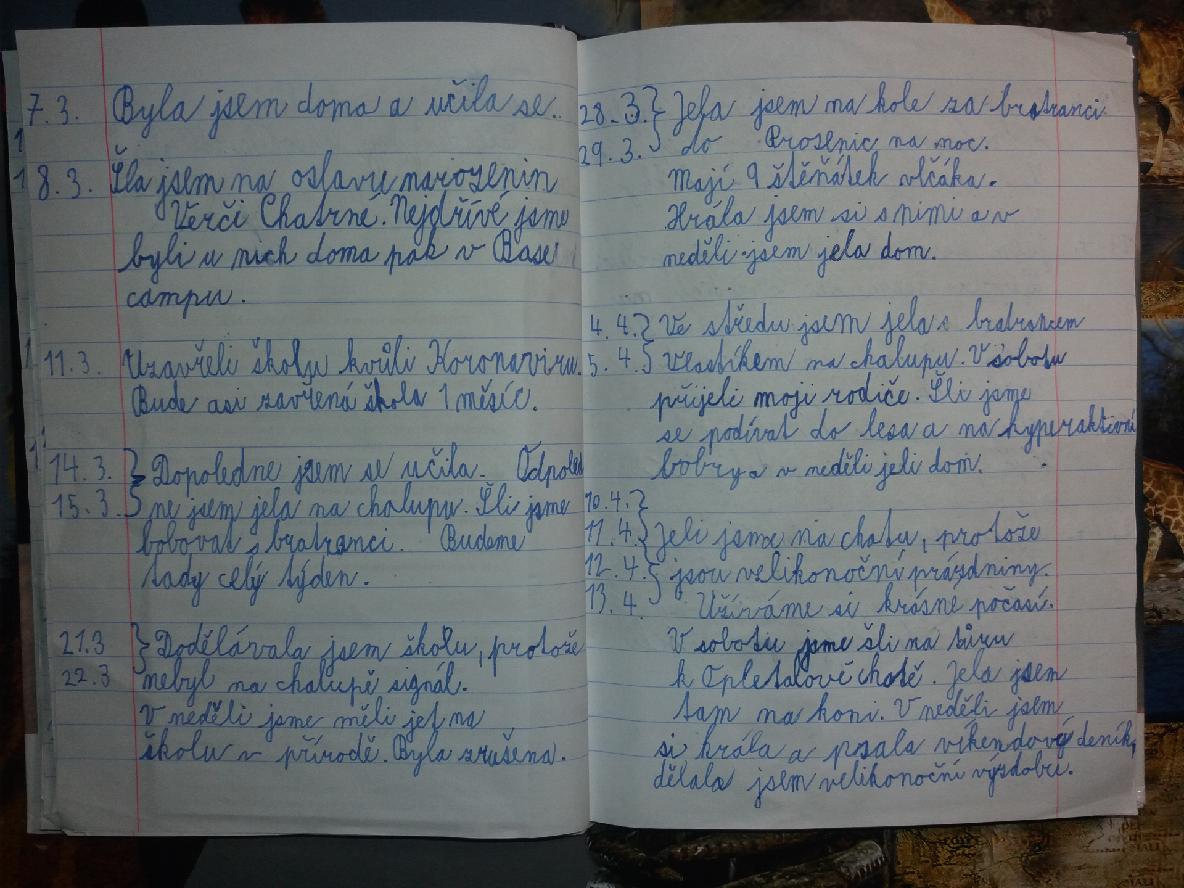 7.3. Byla jsem doma a učila se.
8.3. Šla jsem na oslavu narozenin
Verči Chatrné. Nejdřívé jsme
byli u nich doma pak v Base
campu.
11.3. Uzavřeli školu kvůli Koronaviru.
Bude asi zavřená škola 1 měsíc.
14.3. } Dopoledne jsem se učila. Odpoled
15.3. ne jsem jela na chalupu. Šli jsme
bobovat s bratranci. Budeme
tady celý týden.
21.3 } Dodělávala jsem školu, protože
22.3 nebyl na chalupě signál.
V neděli jsme měli jet na
školu v přírodě. Byla zrušena.
28.3. } Jela jsem na kole za bratranci
29.3. do Prosenic na noc.
Mají 9 štěňátek vlčáka.
Hrála jsem si s nimi a v
neděli jsem jela dom.
4.4. } Ve středu jsem jela s bratrancem
5.4. Vlastíkem na chalupu. V sobotu
přijeli moji rodiče. Šli jsme
se podívat do lesa a na hyperaktivní
bobry a v neděli jeli dom.
10.4. }
11.4. Jeli jsme na chatu, protože
12.4. } jsou velikonoční prázdniny.
13.4. Užíváme si krásné počasí.
V sobotu jsme šli na túru
k chatě. Jela jsem
tam na koni. V neděli jsem
si hrála a psala víkendový deník,
dělala jsem velikonoční výzdobu.